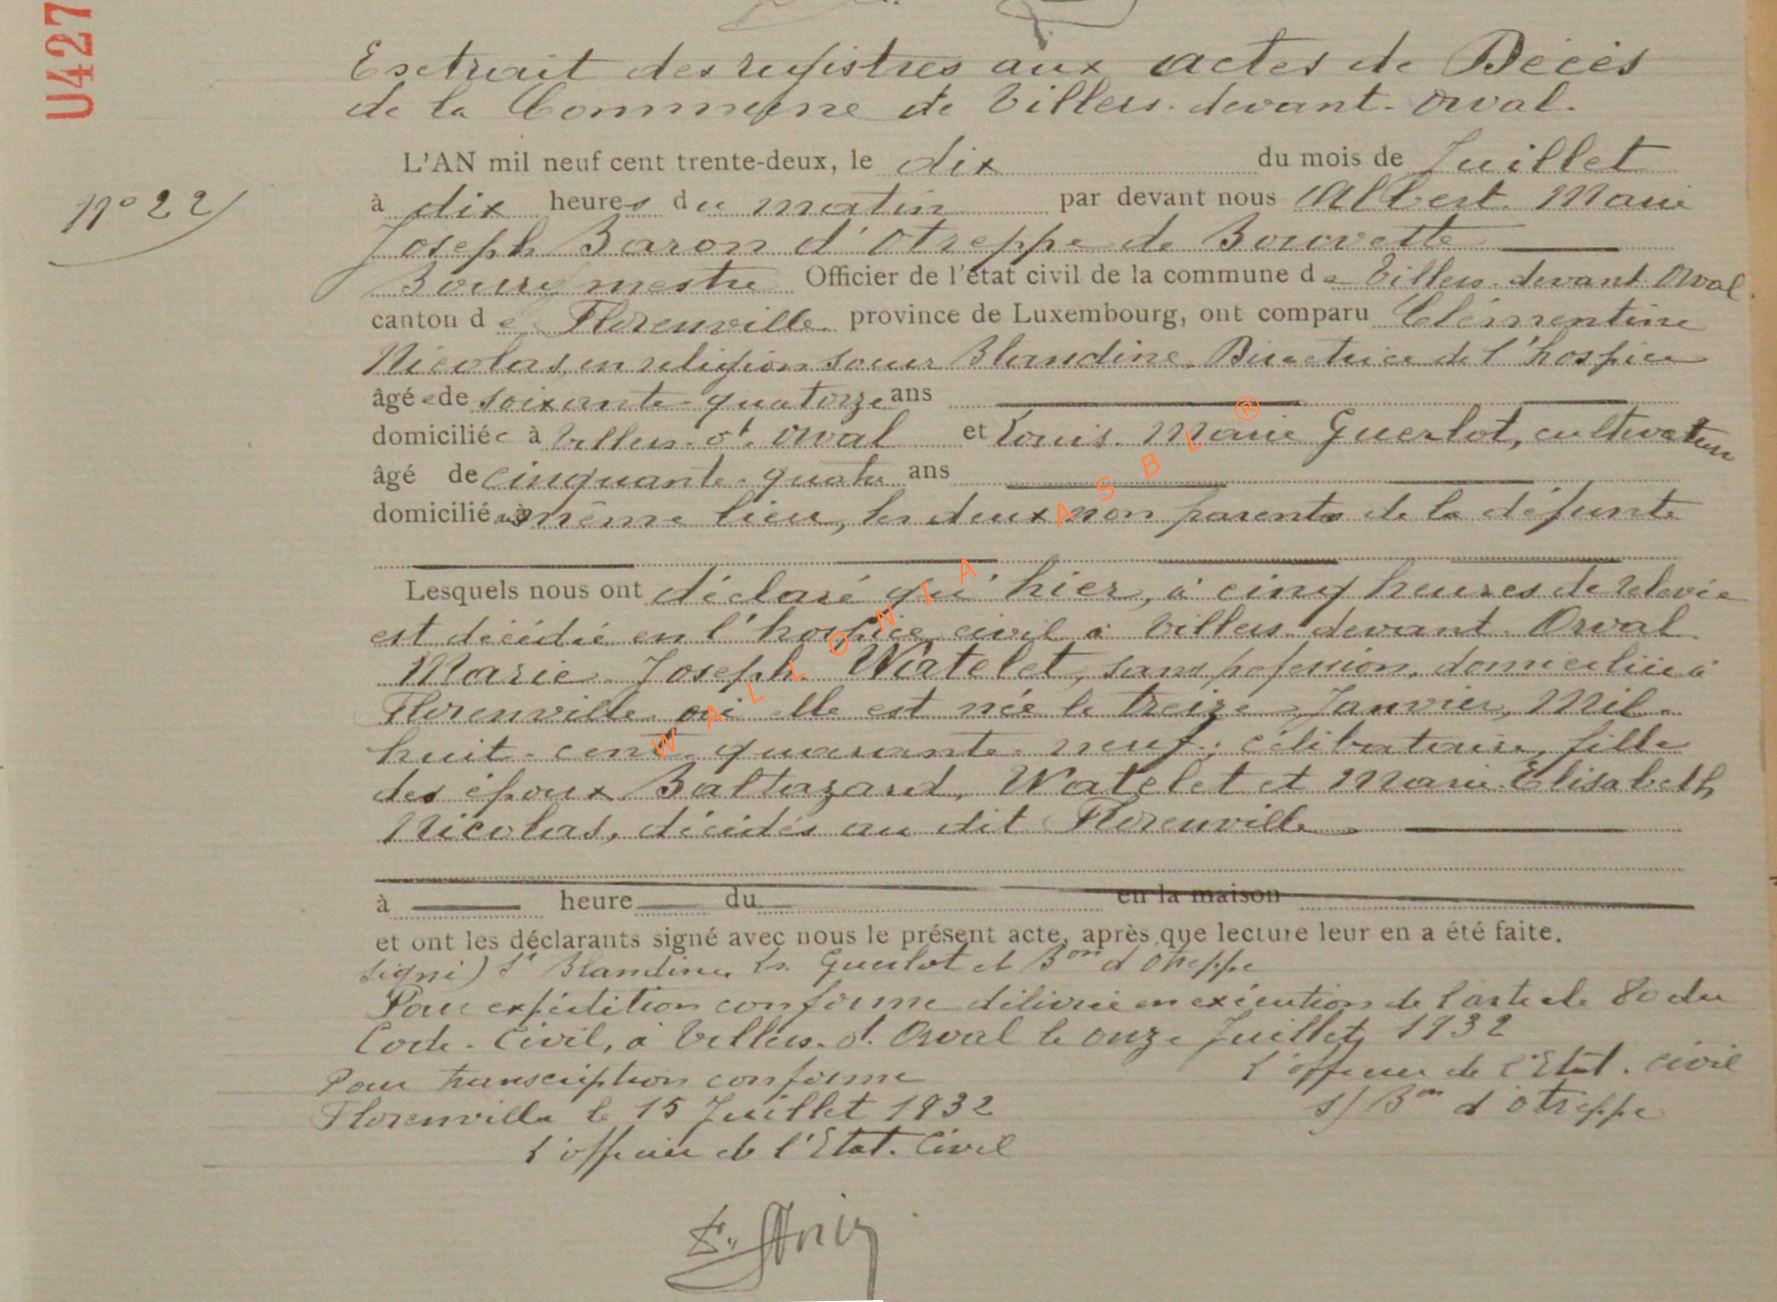 U427
Extrait des registres aux actes de Décès
de la Commune de Villers-devant-Orval.
L'AN mil neuf cent trente-deux, le dix du mois de Juillet
N° 22
à dix heures du matin par devant nous Albert Marie
Joseph Baron d'Otreppe de Bouvette
Bourgmestre Officier de l'état civil de la commune de Villers-devant-Orval
canton de Florenville province de Luxembourg, ont comparu Clémentine
Nicolas, en religion soeur Blandine Directrice de l'hospice
âgée de soixante-quatorze ans
domiciliée à Villers-dt-Orval et Louis Marie Guerlot, cultivateur
âgé de cinquante-quatre ans
domicilié au même lieu, les deux non parents de la défunte
Lesquels nous ont déclaré qu'hier, à cinq heures de relevée
est décédée en l'hospice civil à Villers devant Orval
Marie Joseph Watelet, sans profession, domiciliée à
Florenville où elle est née le treize Janvier, Mil
huit-cent-quarante-neuf; célibataire, fille
des époux Baltazard Watelet et Marie-Elisabeth
Nicolas, décédés au dit Florenville
à heure du en la maison
et ont les déclarants signé avec nous le présent acte, après que lecture leur en a été faite.
signé) Sr Blandine, Ls. Guerlot et Bon d'Otreppe
Pour expédition conforme délivrée en exécution de l'article 80 du
Code-Civil, à Villers-dt-Orval le onze Juillet 1932
Pour transcription conforme L'officier de l'Etat-Civil
Florenville le 15 Juillet 1932 s/ Bon d'Otreppe
L'officier de l'Etat-Civil
WALLONIA ASBL ®